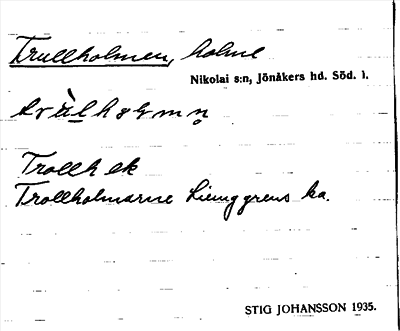 Trullholmen, holme
Nikolai s:n, Jönåkers hd. Söd. l.
Trollh ek
Trollholmarne Liemggrens ka.
STIG JOHANSSON 1935.